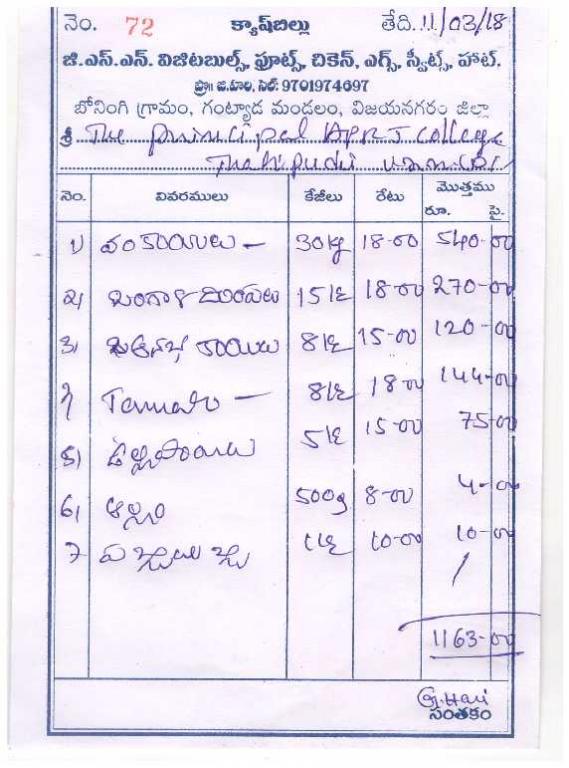 నెం. 72 క్యాష్‌బిల్లు తేది. 11/03/18
జి.ఎస్.ఎన్. విజిటబుల్స్, ఫ్రూట్స్, చికెన్, ఎగ్స్, స్వీట్స్, హాట్.
ప్రొ॥ జి.హరి, సెల్: 9701974697
బోనింగి గ్రామం, గంట్యాడ మండలం, విజయనగరం జిల్లా
శ్రీ The principal APRJ College
నెం. వివరములు కేజీలు రేటు మొత్తము
రూ. పై.
1) వంకాయలు - 30 kg 18-00 540-00
2) బంగాళ దుంపలు 15 kg 18-00 270-00
3) కాయలు 8 kg 15-00 120-00
Tamato - 8 kg 18-00 144-00
5) ఉల్లిపాయలు 5 kg 15-00 75-00
6) అల్లం 500g 8-00 4-00
7 1 kg 10-00 10-00
1163-00
G. Hari
సంతకం